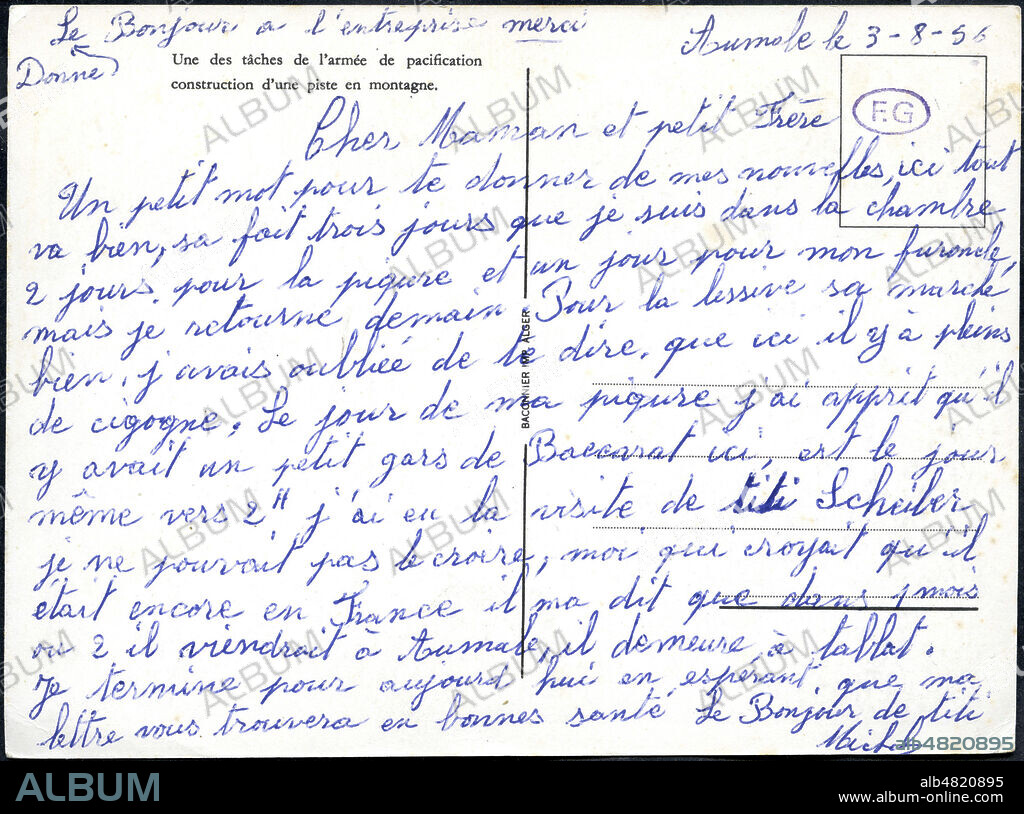 Le Bonjour a l'entreprise merci
Donne
Aumale le 3-8-56
Une des tâches de l'armée de pacification
construction d'une piste en montagne.
F.G
Cher Maman et petit Frère
Un petit mot pour te donner de mes nouvelles, ici tout
va bien, sa fait trois jours que je suis dans la chambre
2 jours pour la piqure et un jour pour mon furoncle,
mais je retourne demain. Pour la lessive sa marche
bien, j'avais oubliée de te dire, que ici il y à pleins
de cigogne. Le jour de ma piqure j'ai apprit qu'il
y avait un petit gars de Baccarat ici, est le jour
même vers 2H j'ai eu la visite de titi Scheiber
je ne pouvait pas le croire, moi qui croyait qu'il
était encore en France il ma dit que dans 1 mois
ou 2 il viendrait à Aumale, il demeure à tablat.
Je termine pour aujourd'hui en esperant que ma
lettre vous trouvera en bonnes santé Le Bonjour de titi
Michel
BACONNIER IMP. ALGER
ALBUM
alb4820895
ALBUM
alb4820895
www.album-online.com